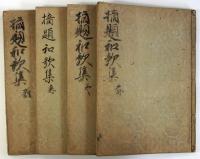 摘題和歌集
摘題和歌集
摘題和歌集
摘題和歌集 雑